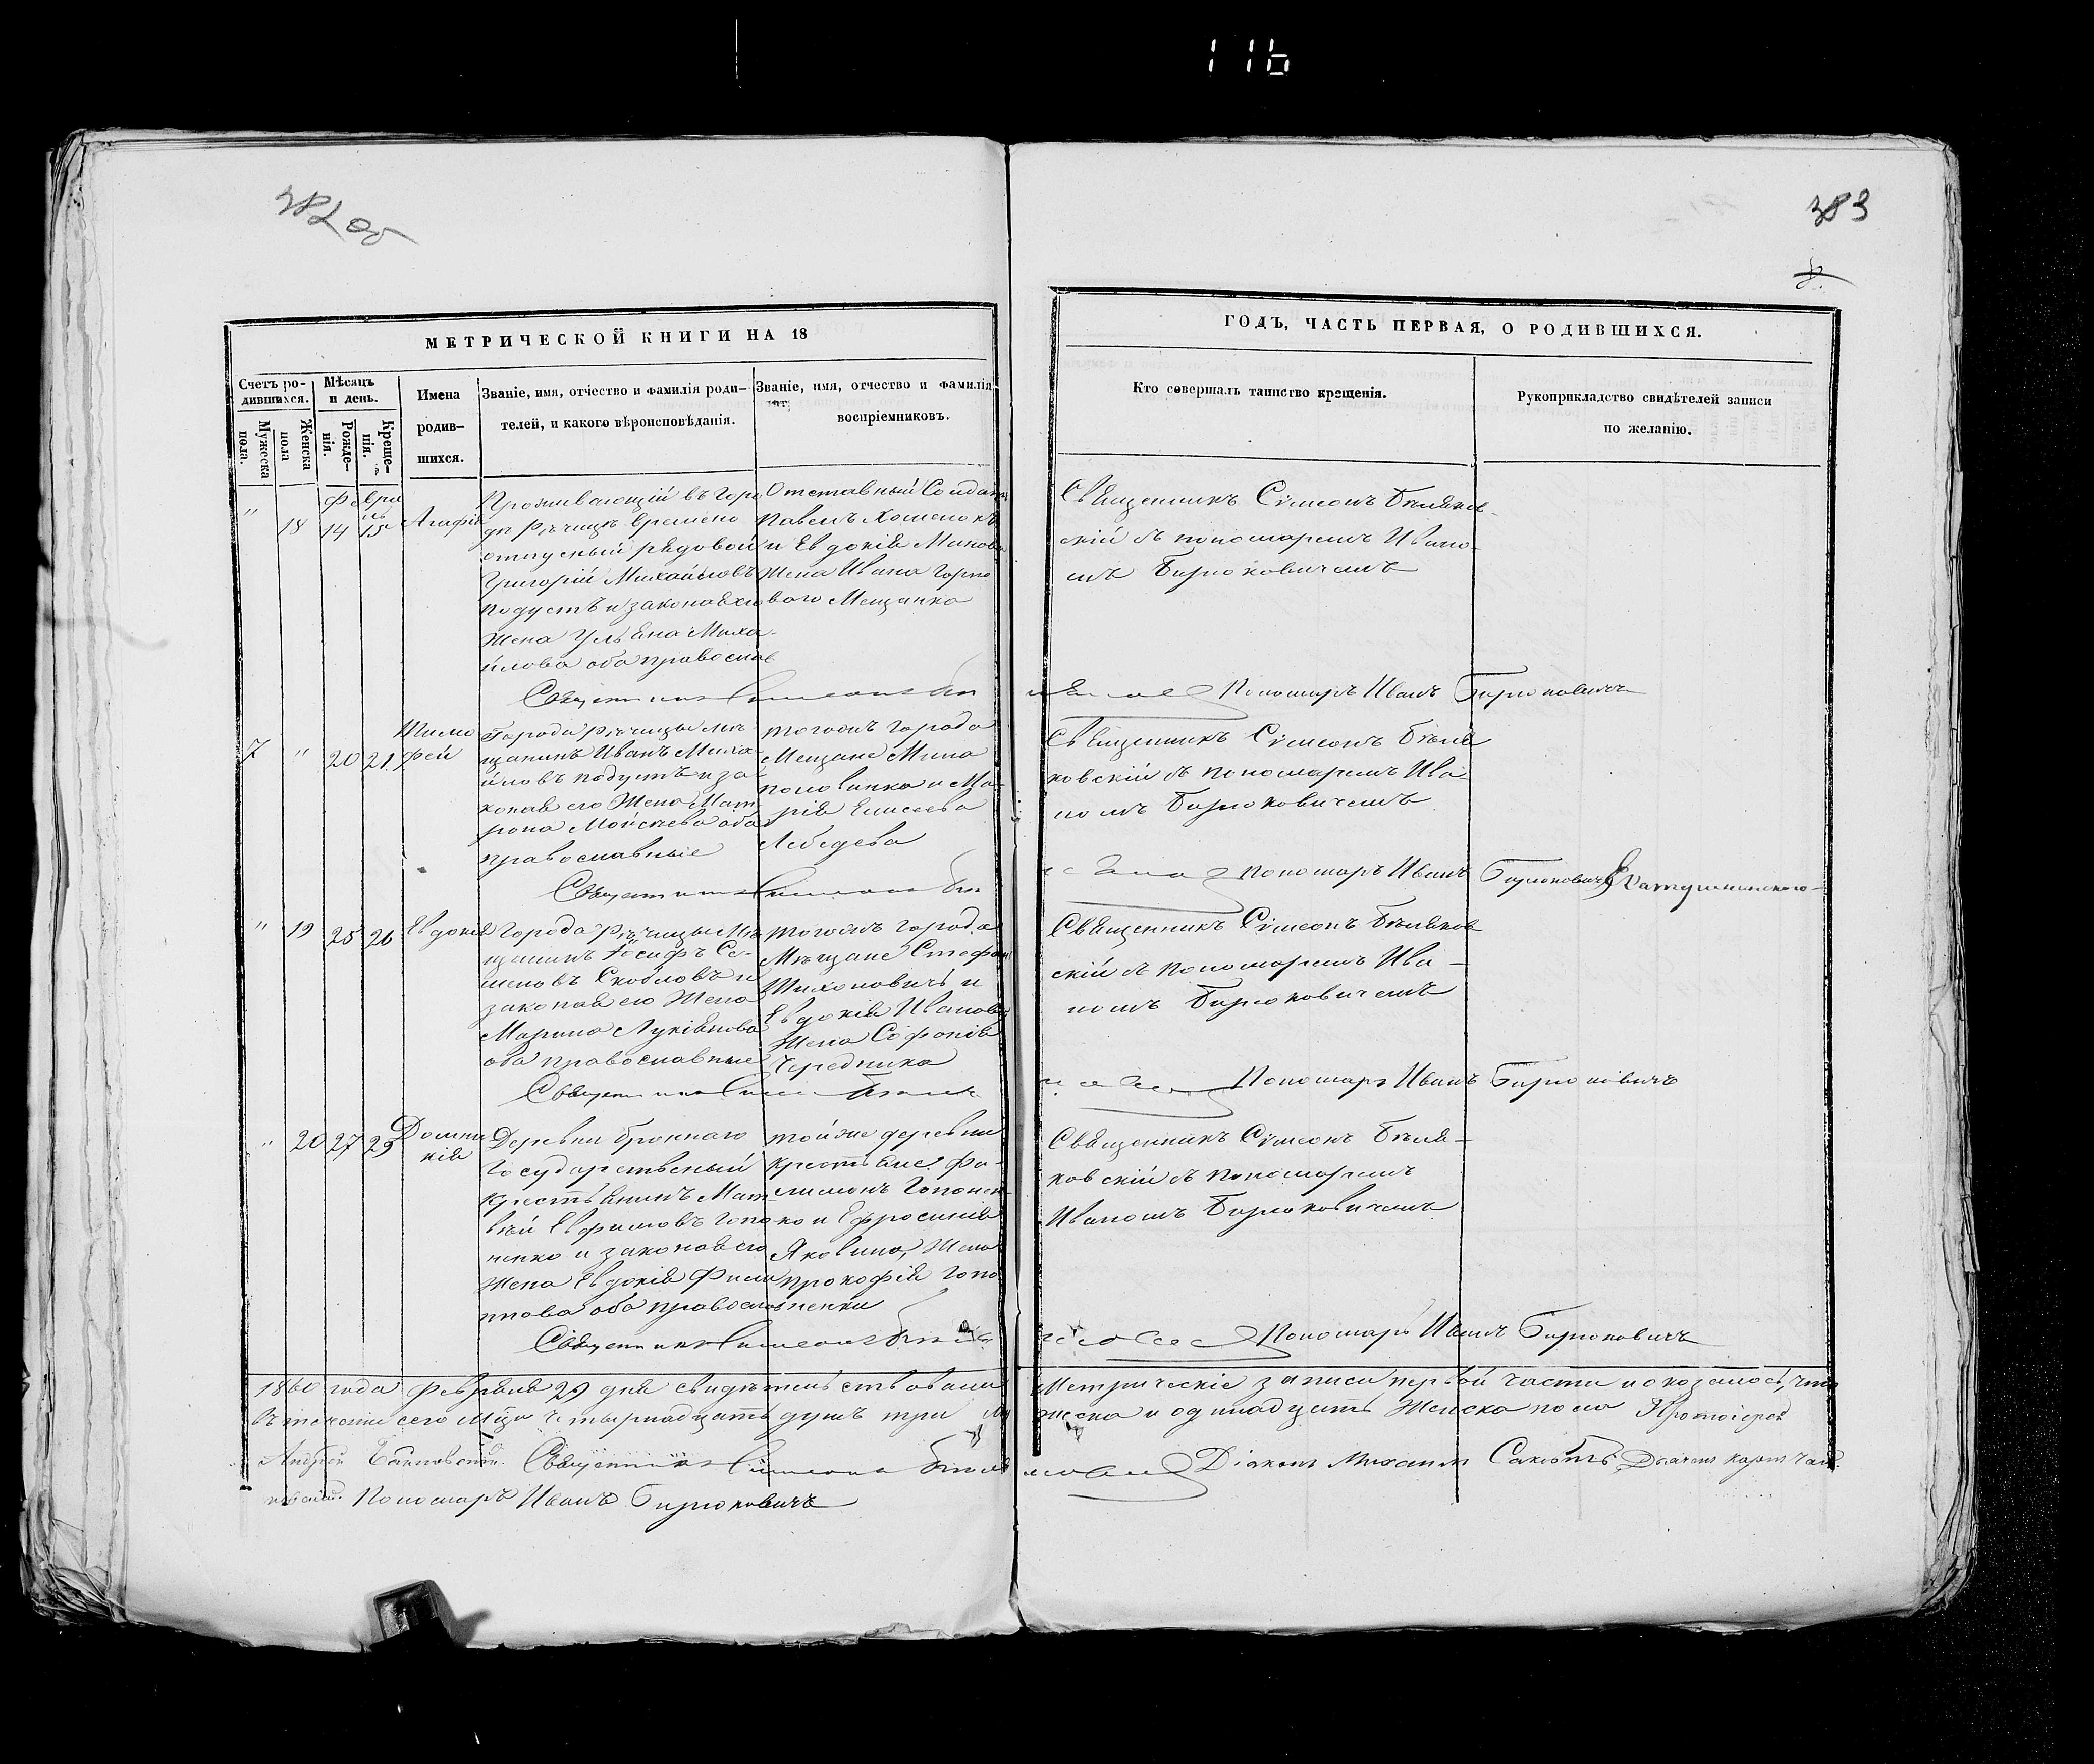 116
382 об
383
МЕТРИЧЕСКОЙ КНИГИ НА 18
Счетъ ро-
дившихся.
Мужеска
пола.
Женска
пола
Мѣсяцъ
и день.
Рожде-
нія.
Креще-
нія.
Имена
родив-
шихся.
Званіе, имя, отчество и фамилія роди-
телей, и какого вѣроисповѣданія.
Званіе, имя, отчество и фамилія
воспріемниковъ.
ГОДЪ, ЧАСТЬ ПЕРВАЯ, О РОДИВШИХСЯ.
Кто совершалъ таинство крещенія.
Рукоприкладство свидѣтелей записи
по желанію.
"
18
Февра
ль
14
15
Агафія
Проживающій въ Горо
дѣ Рѣчицѣ временно
отпускный рядовой
Григорій Михайловъ
Подустъ и законая его
Жена Ульяна Миха-
йлова оба православ
Отставный Солдатъ
Павелъ Хоменокъ
и Евдокія Минова
Жена Ивана Горпо
ваго Мещанка
Священникъ Сѵмеонъ Беляков-
скій съ пономаремъ Ивано-
мъ Бирюковичемъ
Священникъ Симеонъ Бел
Пономарь Иванъ Бирюковичъ
7
"
20
21
Тимо
фей
Города Рѣчицы мѣ-
щанинъ Иванъ Миха-
йловъ Подустъ и за-
конная его Жена Мат
рона Мойсѣева оба
православные
тогожъ города
Мещане Мина
Половинко и Ма-
рія Елисеева
Лебедева
Священникъ Сѵмеонъ Беля
ковскій съ пономаремъ Ива-
номъ Бирюковичемъ
Священникъ Симеонъ Бел
Пономарь Иванъ Бирюковичъ
"
19
25
26
Евдокія
Города Рѣчицы Мѣ
щанинъ Іосифъ Се-
меновъ Скобловъ и
законая его Жена
Марина Лукіянова
оба православные
тогожъ города
Мѣщане Стефанъ
Тихоновичъ и
Евдокія Иванова
Жена Софонія
Чередника
Священникъ Сѵмеонъ Беляков
скій съ пономаремъ Ива-
номъ Бирюковичемъ
Священникъ Симеонъ Беля
Пономарь Иванъ Бирюковичъ
"
20
27
29
Домни
кія
Деревни Броннаго
Государственый
Крестьянинъ Мат-
вѣй Евфимовъ Гопо
ненко и законая его
Жена Евдокія Фили
ппова оба православ
тойже деревни
крестьяне Фи-
лимонъ Гопонен-
ко и Ефросинія
Яковина, Жена
Прокофія Гопо
ненки
Священникъ Сѵмеонъ Беля-
ковскій съ пономаремъ
Иваномъ Бирюковичемъ
Священникъ Симеонъ Беля
Пономарь Иванъ Бирюковичъ
1860 года Февраля 29 дня свидѣтельствовали Метрическіе записи первой части и оказалось, что
въ теченіи сего М-ца четырнадцать душъ три Му жеска и одинадцать Женска пола Протоіерей
Андрей Священникъ Симеонъ Беля Діаконъ Михаилъ Дьячекъ
Пономарь Иванъ Бирюковичъ